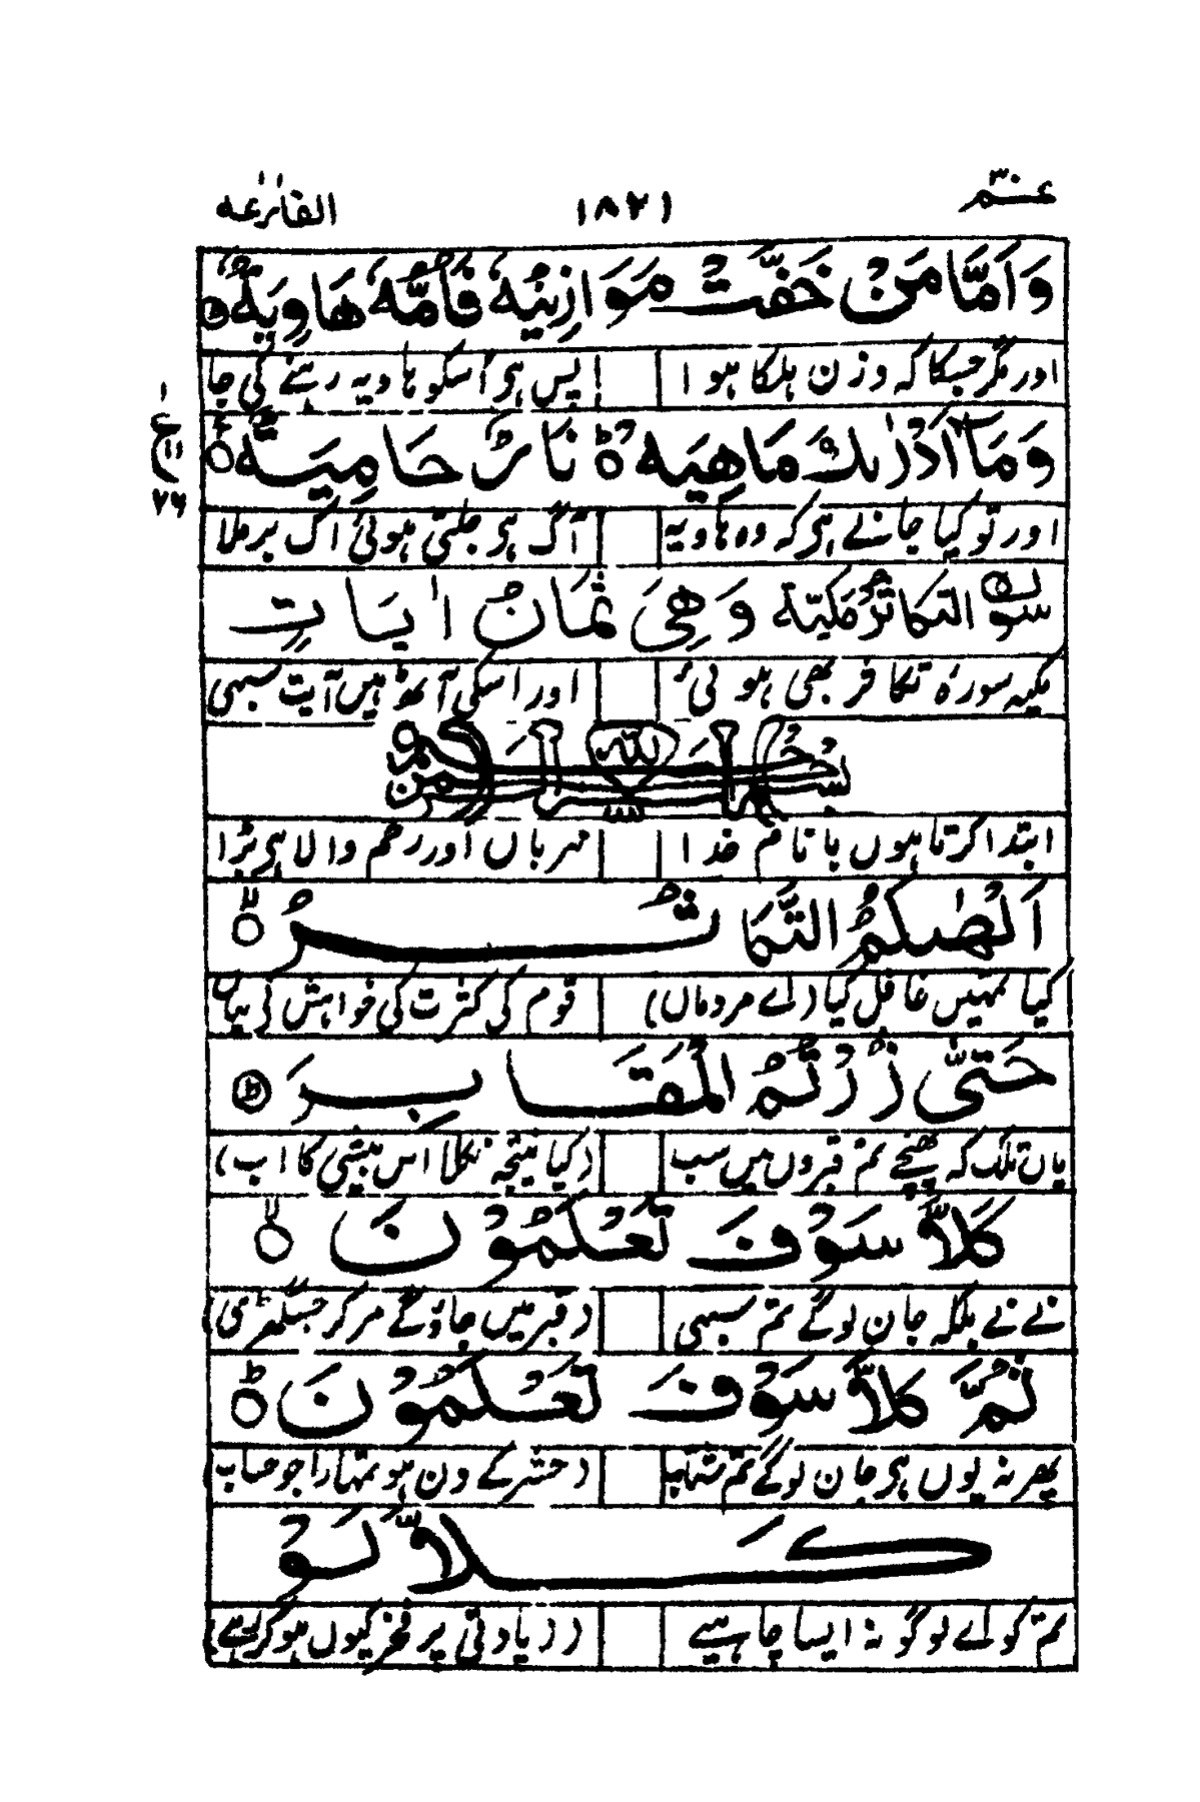 عمّ ۳۰ ۱۸۲۱ القارعه
وَاَمَّا مَنْ خَفَّتْ مَوَازِيْنُهٗ فَاُمُّهٗ هَاوِيَةٌ
اور مگر جسکا کہ وزن ہلکا ہوا پس ہی اُسکو ہاویہ رہنے کی جا
وَمَآ اَدْرٰىكَ مَاهِيَهْ ۞ نَارٌ حَامِيَةٌ
اور تو کیا جانے ہی کہ وہ ہاویہ آگ ہی جلتی ہوئی اگ برملا
سورة التكاثر مَكِّيّة وَهِيَ ثَمَانُ اٰيَاتٍ
مکیہ سورۂ تکاثر بھی ہوئی اور اسکی آٹھ ہیں آیت سبھی
بسم الله الرحمن الرحيم
ابتدا کرتا ہوں با نام خدا مہرباں اور رحم والا ہی بڑا
اَلْهٰىكُمُ التَّكَاثُرُ
کیا تمہیں غافل کیا (اے مردماں) قوم کی کثرت کی خواہش نی یہاں
حَتّٰى زُرْتُمُ الْمَقَابِرَ
یاں تلک کہ پہنچے تم قبروں میں سب (کیا نتیجہ نکلا اس بیشی کا اب)
كَلَّا سَوْفَ تَعْلَمُوْنَ
نے نے بلکہ جان لوگے تم سبھی (قبر میں جاؤگے مرکر جس گھڑی)
ثُمَّ كَلَّا سَوْفَ تَعْلَمُوْنَ
پھر نہ یوں ہی جان لوگے تم شتاب (حشر کے دن ہو تمہارا جو حساب
كَلَّا لَوْ
تم کو اے لوگو نہ ایسا چاہیے (زیادتی پر فخر کیوں ہو کر رہے)
ع ۱۱ ۷۶